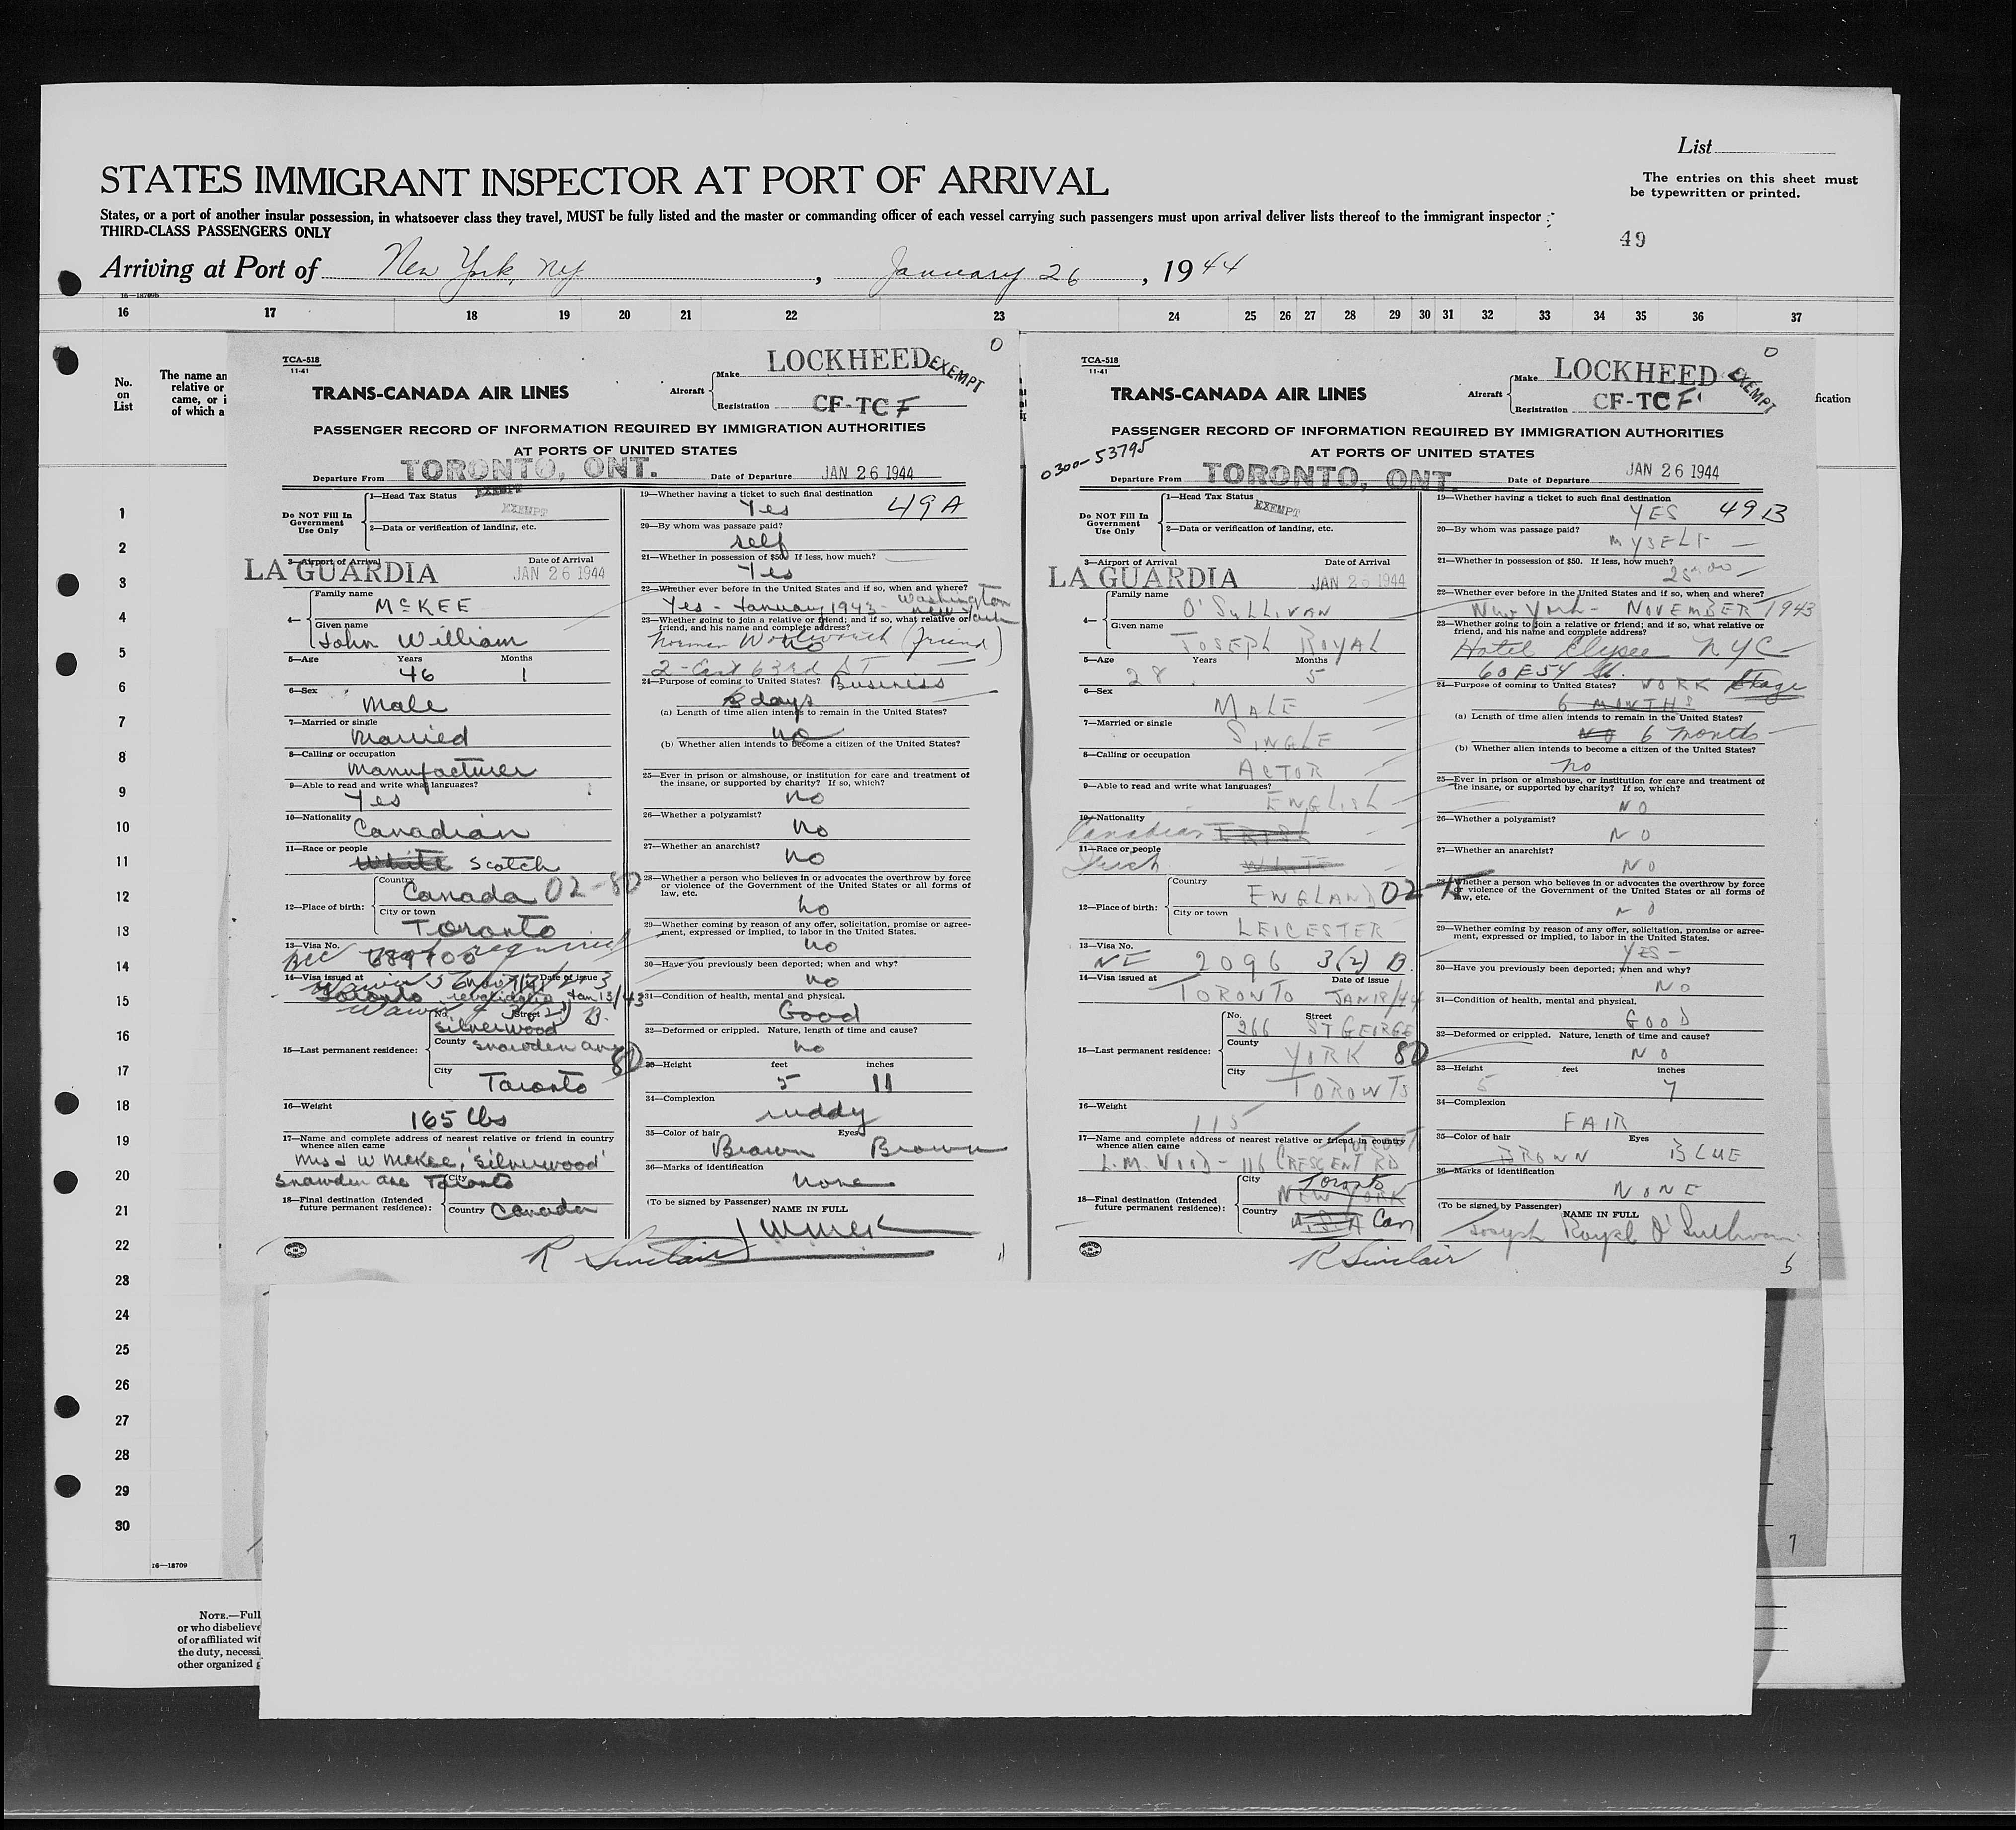 List
STATES IMMIGRANT INSPECTOR AT PORT OF ARRIVAL
The entries on this sheet must
be typewritten or printed.
States, or a port of another insular possession, in whatsoever class they travel, MUST be fully listed and the master or commanding officer of each vessel carrying such passengers must upon arrival deliver lists thereof to the immigrant inspector
THIRD-CLASS PASSENGERS ONLY
49
Arriving at Port of New York, NY, January 26, 1944
16—18709b
16 17 18 19 20 21 22 23 24 25 26 27 28 29 30 31 32 33 34 35 36 37
No.
on
List
The name an
relative or
came, or i
of which a
fication
1
2
3
4
5
6
7
8
9
10
11
12
13
14
15
16
17
18
19
20
21
22
23
24
25
26
27
28
29
30
TCA-518
11-41
TRANS-CANADA AIR LINES
Aircraft
Make LOCKHEED
EXEMPT
Registration CF-TCF
PASSENGER RECORD OF INFORMATION REQUIRED BY IMMIGRATION AUTHORITIES
AT PORTS OF UNITED STATES
Departure From TORONTO, ONT. Date of Departure JAN 26 1944
Do NOT Fill In
Government
Use Only
1—Head Tax Status EXEMPT
EXEMPT
2—Data or verification of landing, etc.
3—Airport of Arrival Date of Arrival
LA GUARDIA JAN 26 1944
4—
Family name
McKEE
Given name
John William
5—Age Years Months
46 1
6—Sex
Male
7—Married or single
Married
8—Calling or occupation
Manufacturer
9—Able to read and write what languages?
Yes
10—Nationality
Canadian
11—Race or people
White Scotch
12—Place of birth:
Country
Canada 02-80
City or town
Toronto
13—Visa No.
not required
14—Visa issued at Date of issue
Toronto revalidated Jan 13/43
15—Last permanent residence:
No. Street
Silverwood
County
Snowden ave
80
City
Toronto
16—Weight
165 lbs
17—Name and complete address of nearest relative or friend in country
whence alien came
Mrs J W McKee, 'Silverwood'
Snowden ave Toronto
18—Final destination (Intended
future permanent residence):
City
Country Canada
19—Whether having a ticket to such final destination
Yes 49A
20—By whom was passage paid?
self
21—Whether in possession of $50. If less, how much?
Yes
22—Whether ever before in the United States and if so, when and where?
Yes - January 1943 - Washington
New York
23—Whether going to join a relative or friend; and if so, what relative or
friend, and his name and complete address?
No
Norman Woolworth (friend)
2 - East 63rd ST
24—Purpose of coming to United States? Business
days
(a) Length of time alien intends to remain in the United States?
no
(b) Whether alien intends to become a citizen of the United States?
25—Ever in prison or almshouse, or institution for care and treatment of
the insane, or supported by charity? If so, which?
no
26—Whether a polygamist?
no
27—Whether an anarchist?
no
28—Whether a person who believes in or advocates the overthrow by force
or violence of the Government of the United States or all forms of
law, etc.
no
29—Whether coming by reason of any offer, solicitation, promise or agree-
ment, expressed or implied, to labor in the United States.
no
30—Have you previously been deported; when and why?
no
31—Condition of health, mental and physical.
Good
32—Deformed or crippled. Nature, length of time and cause?
no
33—Height feet inches
5 11
34—Complexion
ruddy
35—Color of hair Eyes
Brown Brown
36—Marks of identification
none
(To be signed by Passenger)
NAME IN FULL
R Sinclair
TCA-518
11-41
TRANS-CANADA AIR LINES
Aircraft
Make LOCKHEED
EXEMPT
Registration CF-TCF
PASSENGER RECORD OF INFORMATION REQUIRED BY IMMIGRATION AUTHORITIES
AT PORTS OF UNITED STATES
0300-53795
Departure From TORONTO, ONT. Date of Departure JAN 26 1944
Do NOT Fill In
Government
Use Only
1—Head Tax Status
EXEMPT
2—Data or verification of landing, etc.
3—Airport of Arrival Date of Arrival
LA GUARDIA JAN 26 1944
4—
Family name
O'SULLIVAN
Given name
JOSEPH ROYAL
5—Age Years Months
28 5
6—Sex
MALE
7—Married or single
SINGLE
8—Calling or occupation
ACTOR
9—Able to read and write what languages?
ENGLISH
10—Nationality
Canadian IRISH
11—Race or people
Irish WHITE
12—Place of birth:
Country
ENGLAND 02-15
City or town
LEICESTER
13—Visa No.
NE 2096 3(2) B.
14—Visa issued at Date of issue
TORONTO JAN 18/44
15—Last permanent residence:
No. Street
266 ST GEORGE
County
YORK 80
City
TORONTO
16—Weight
115
17—Name and complete address of nearest relative or friend in country
whence alien came
TORONTO
L.M. WOOD - 116 CRESCENT RD
18—Final destination (Intended
future permanent residence):
City Toronto
NEW YORK
Country U.S.A Can
19—Whether having a ticket to such final destination
YES 49B
20—By whom was passage paid?
MYSELF
21—Whether in possession of $50. If less, how much?
22—Whether ever before in the United States and if so, when and where?
New York - NOVEMBER 1943
23—Whether going to join a relative or friend; and if so, what relative or
friend, and his name and complete address?
Hotel Elysee NYC
60 E 54 St.
24—Purpose of coming to United States? WORK Stage
6 MONTHS
(a) Length of time alien intends to remain in the United States?
NO 6 months
(b) Whether alien intends to become a citizen of the United States?
no
25—Ever in prison or almshouse, or institution for care and treatment of
the insane, or supported by charity? If so, which?
NO
26—Whether a polygamist?
NO
27—Whether an anarchist?
NO
28—Whether a person who believes in or advocates the overthrow by force
or violence of the Government of the United States or all forms of
law, etc.
NO
29—Whether coming by reason of any offer, solicitation, promise or agree-
ment, expressed or implied, to labor in the United States.
YES -
30—Have you previously been deported; when and why?
NO
31—Condition of health, mental and physical.
GOOD
32—Deformed or crippled. Nature, length of time and cause?
NO
33—Height feet inches
5 7
34—Complexion
FAIR
35—Color of hair Eyes
BROWN BLUE
36—Marks of identification
NONE
(To be signed by Passenger)
NAME IN FULL
Joseph Royal O'Sullivan
R Sinclair
5
7
16—18709
NOTE.—Full
or who disbelieve
of or affiliated wit
the duty, necessi
other organized g